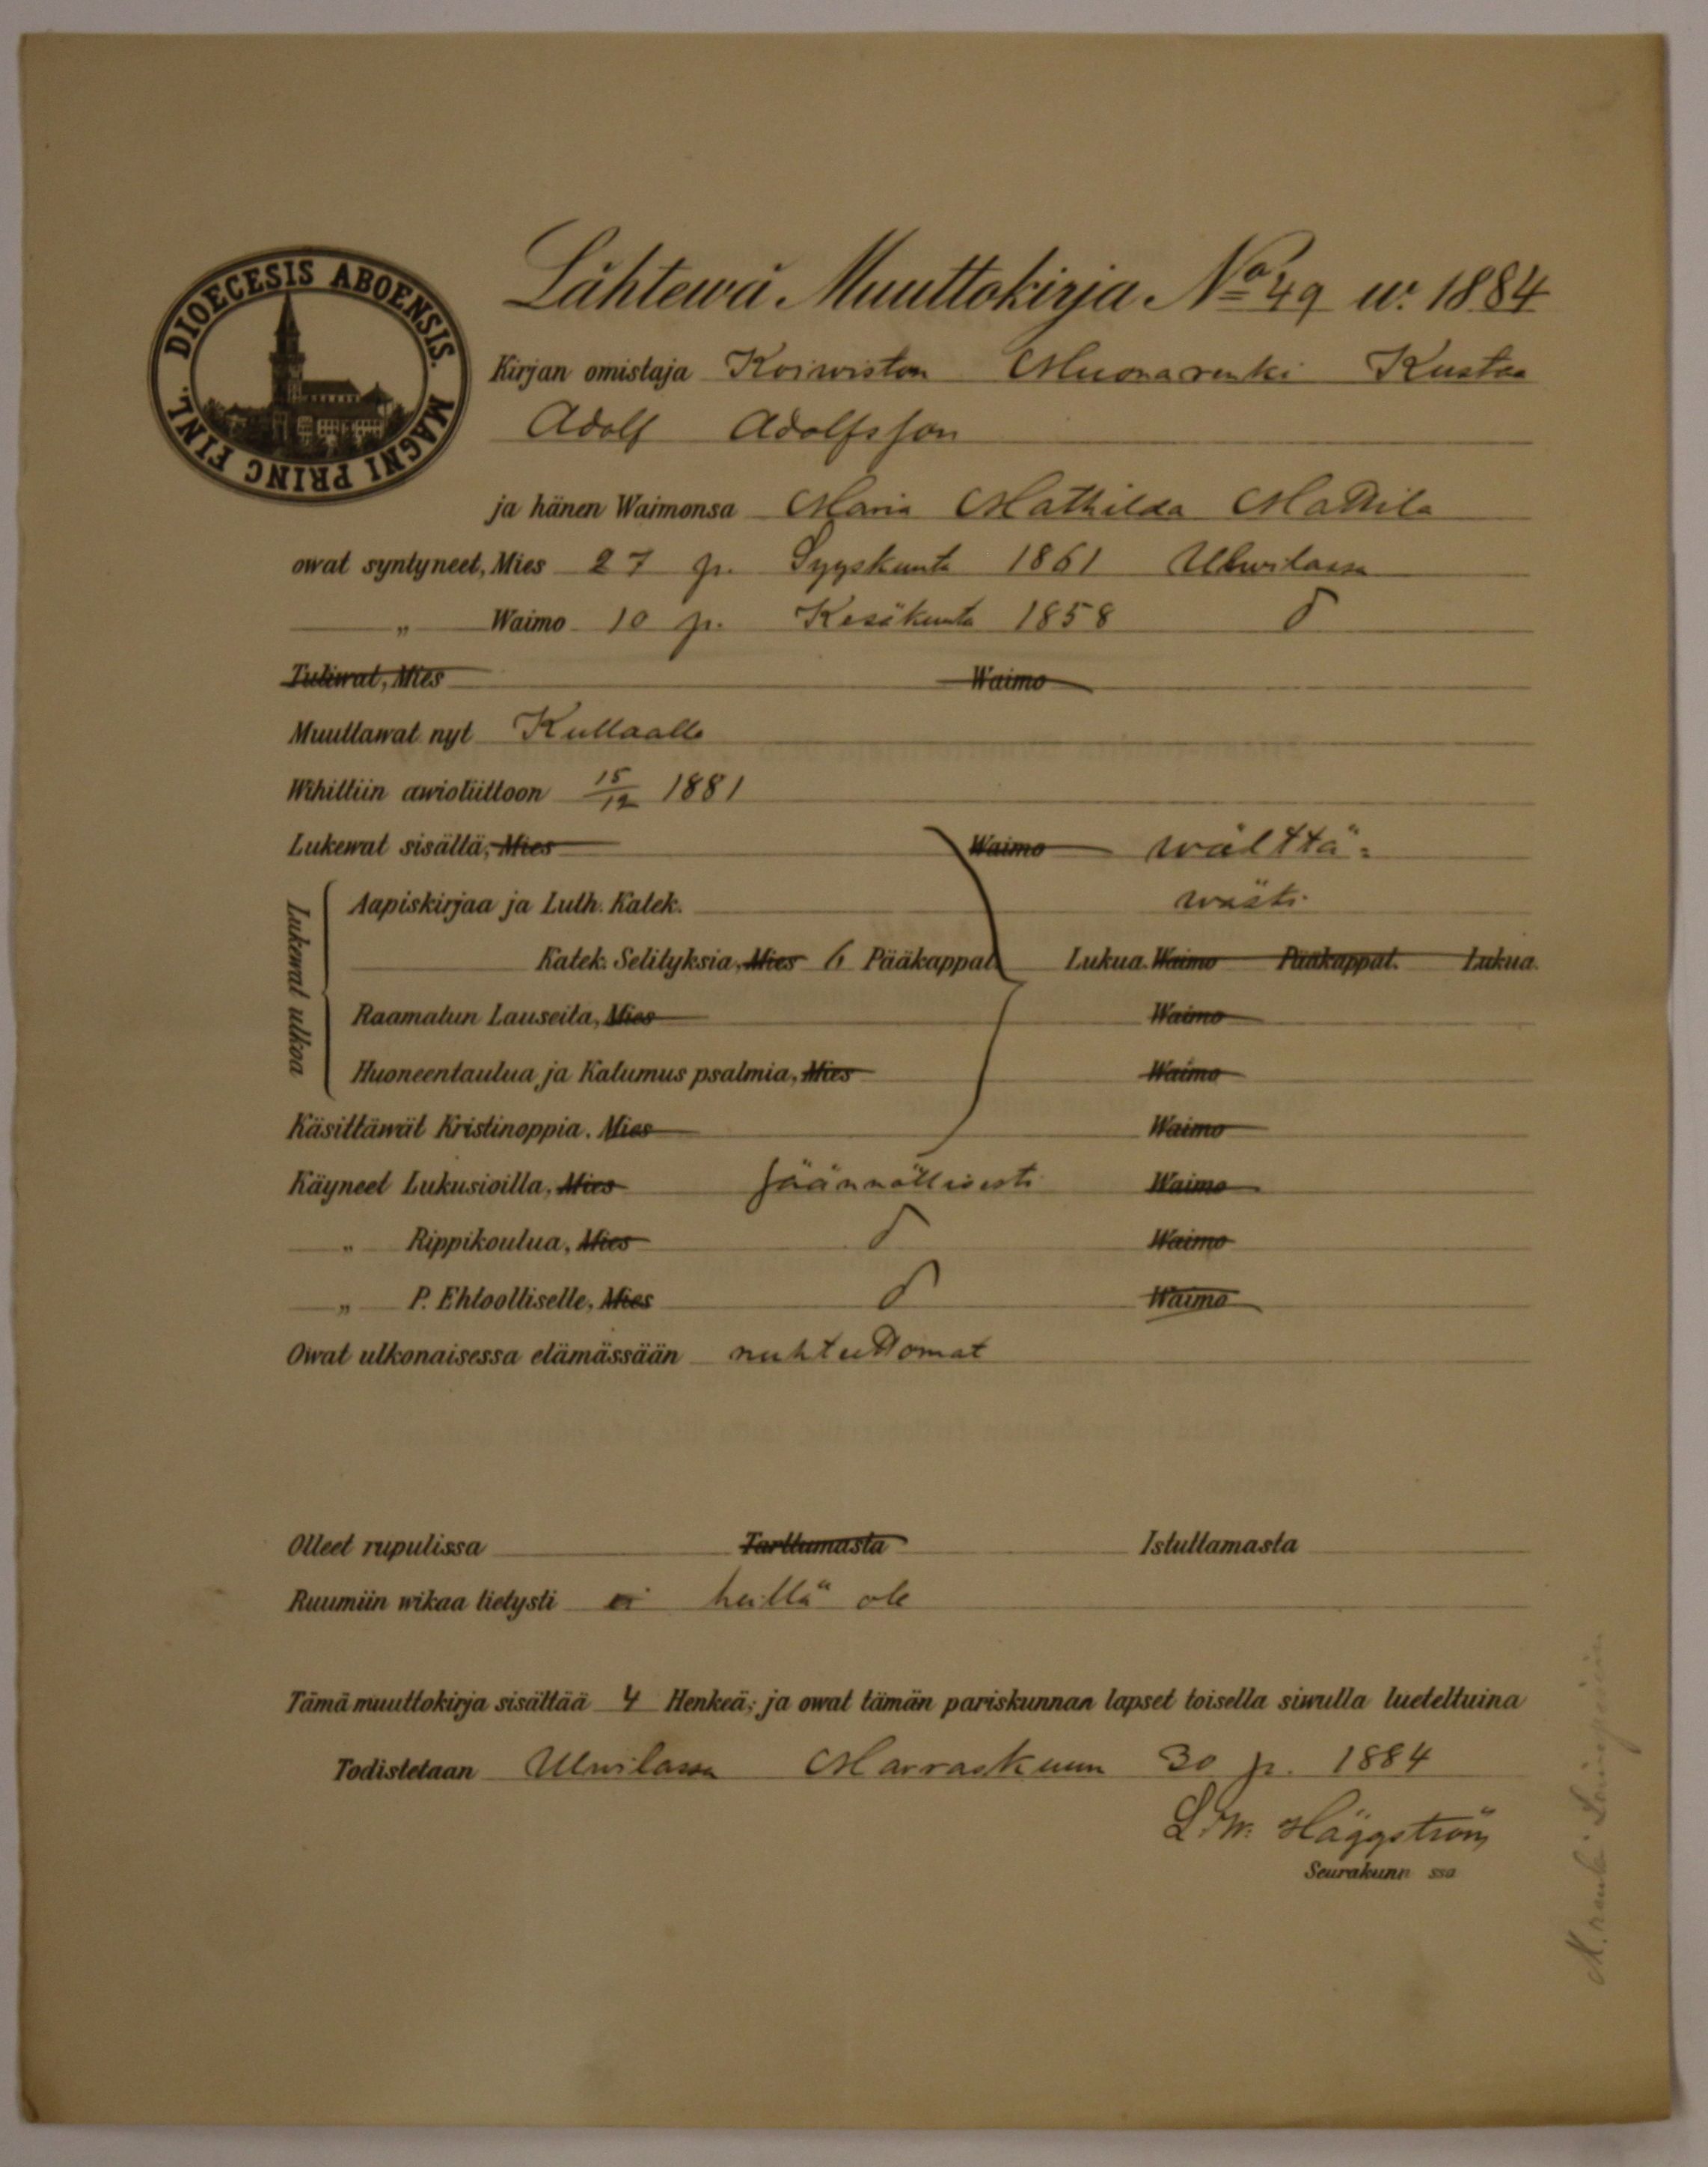 DIOECESIS ABOENSIS. MAGNI PRINC FINL.
Lähtewä Muuttokirja No 49 w. 1884
Kirjan omistaja Koiwiston Muonarenki Kustaa
Adolf Adolfsson
ja hänen Waimonsa Maria Mathilda Mattila
owat syntyneet, Mies 27 p. Syyskuuta 1861 Ulwilassa
„ Waimo 10 p. Kesäkuuta 1858
Tuliwat, Mies Waimo
Muuttawat nyt Kullaalle
Wihittiin awioliittoon 15/12 1881
Lukewat sisältä, Mies Waimo wälttä=
Lukewat ulkoa
Aapiskirjaa ja Luth. Katek. wästi
Katek. Selityksia, Mies 6 Pääkappat. Lukua. Waimo Pääkappat. Lukua.
Raamatun Lauseita, Mies Waimo
Huoneentaulua ja Katumus psalmia, Mies Waimo
Käsittäwät Kristinoppia. Mies Waimo
Käyneet Lukusioilla, Mies säännöllisesti Waimo
„ Rippikoulua, Mies Waimo
„ P. Ehtoolliselle, Mies Waimo
Owat ulkonaisessa elämässään nuhteettomat
Olleet rupulissa Tarttumasta Istuttamasta
Ruumiin wikaa tietysti ei heillä ole
Tämä muuttokirja sisältää 4 Henkeä; ja owat tämän pariskunnan lapset toisella siwulla lueteltuina
Todistetaan Ulwilassa Marraskuun 30 p. 1884
L. W. Häggström
Seurakunn ssa